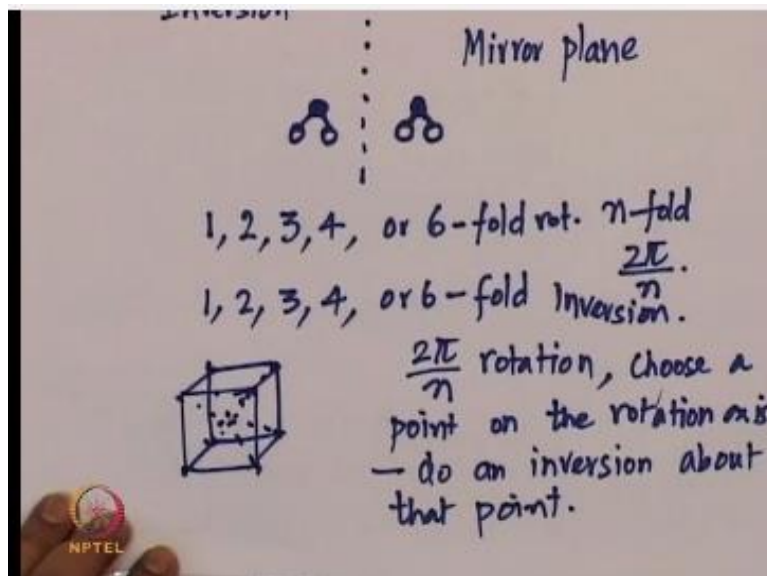 Inversion
Mirror plane
1, 2, 3, 4, or 6-fold rot. n-fold
2π/n.
1, 2, 3, 4, or 6-fold Inversion.
2π/n rotation, choose a
point on the rotation axis
— do an inversion about
that point.
NPTEL